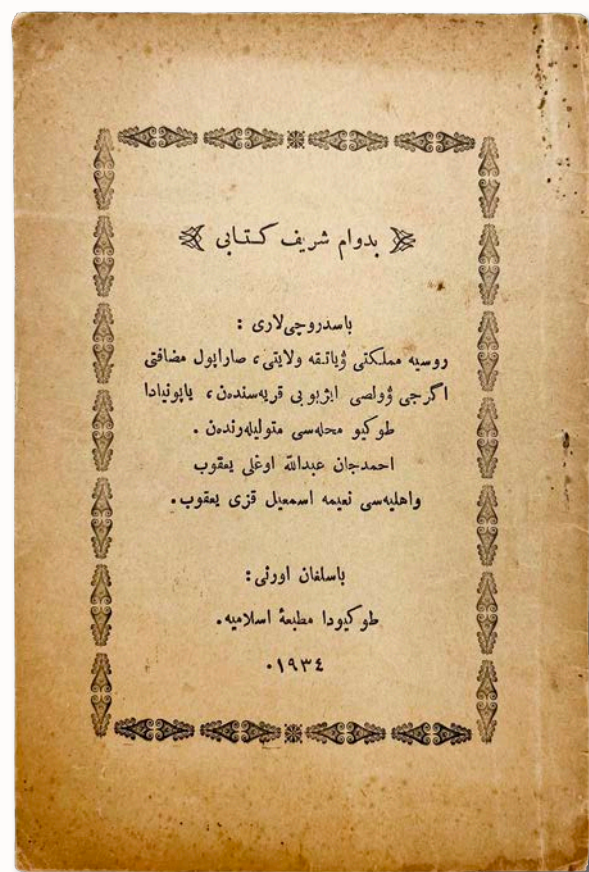 بدوام شريف كتابى
باسدروچى‌لارى :
روسيه مملكتى ۋياتقه ولايتى، صاراپول مضافتى
اگرجى ۋولصى ايژبوبى قريه‌سندەن، ياپونيادا
طوكيو محله‌سى متوليله‌رندەن .
احمدجان عبدالله اوغلى يعقوب
واهليه‌سى نعيمه اسمعيل قزى يعقوب.
باسلغان اورنى :
طوكيودا مطبعۀ اسلاميه.
۱۹۳٤.